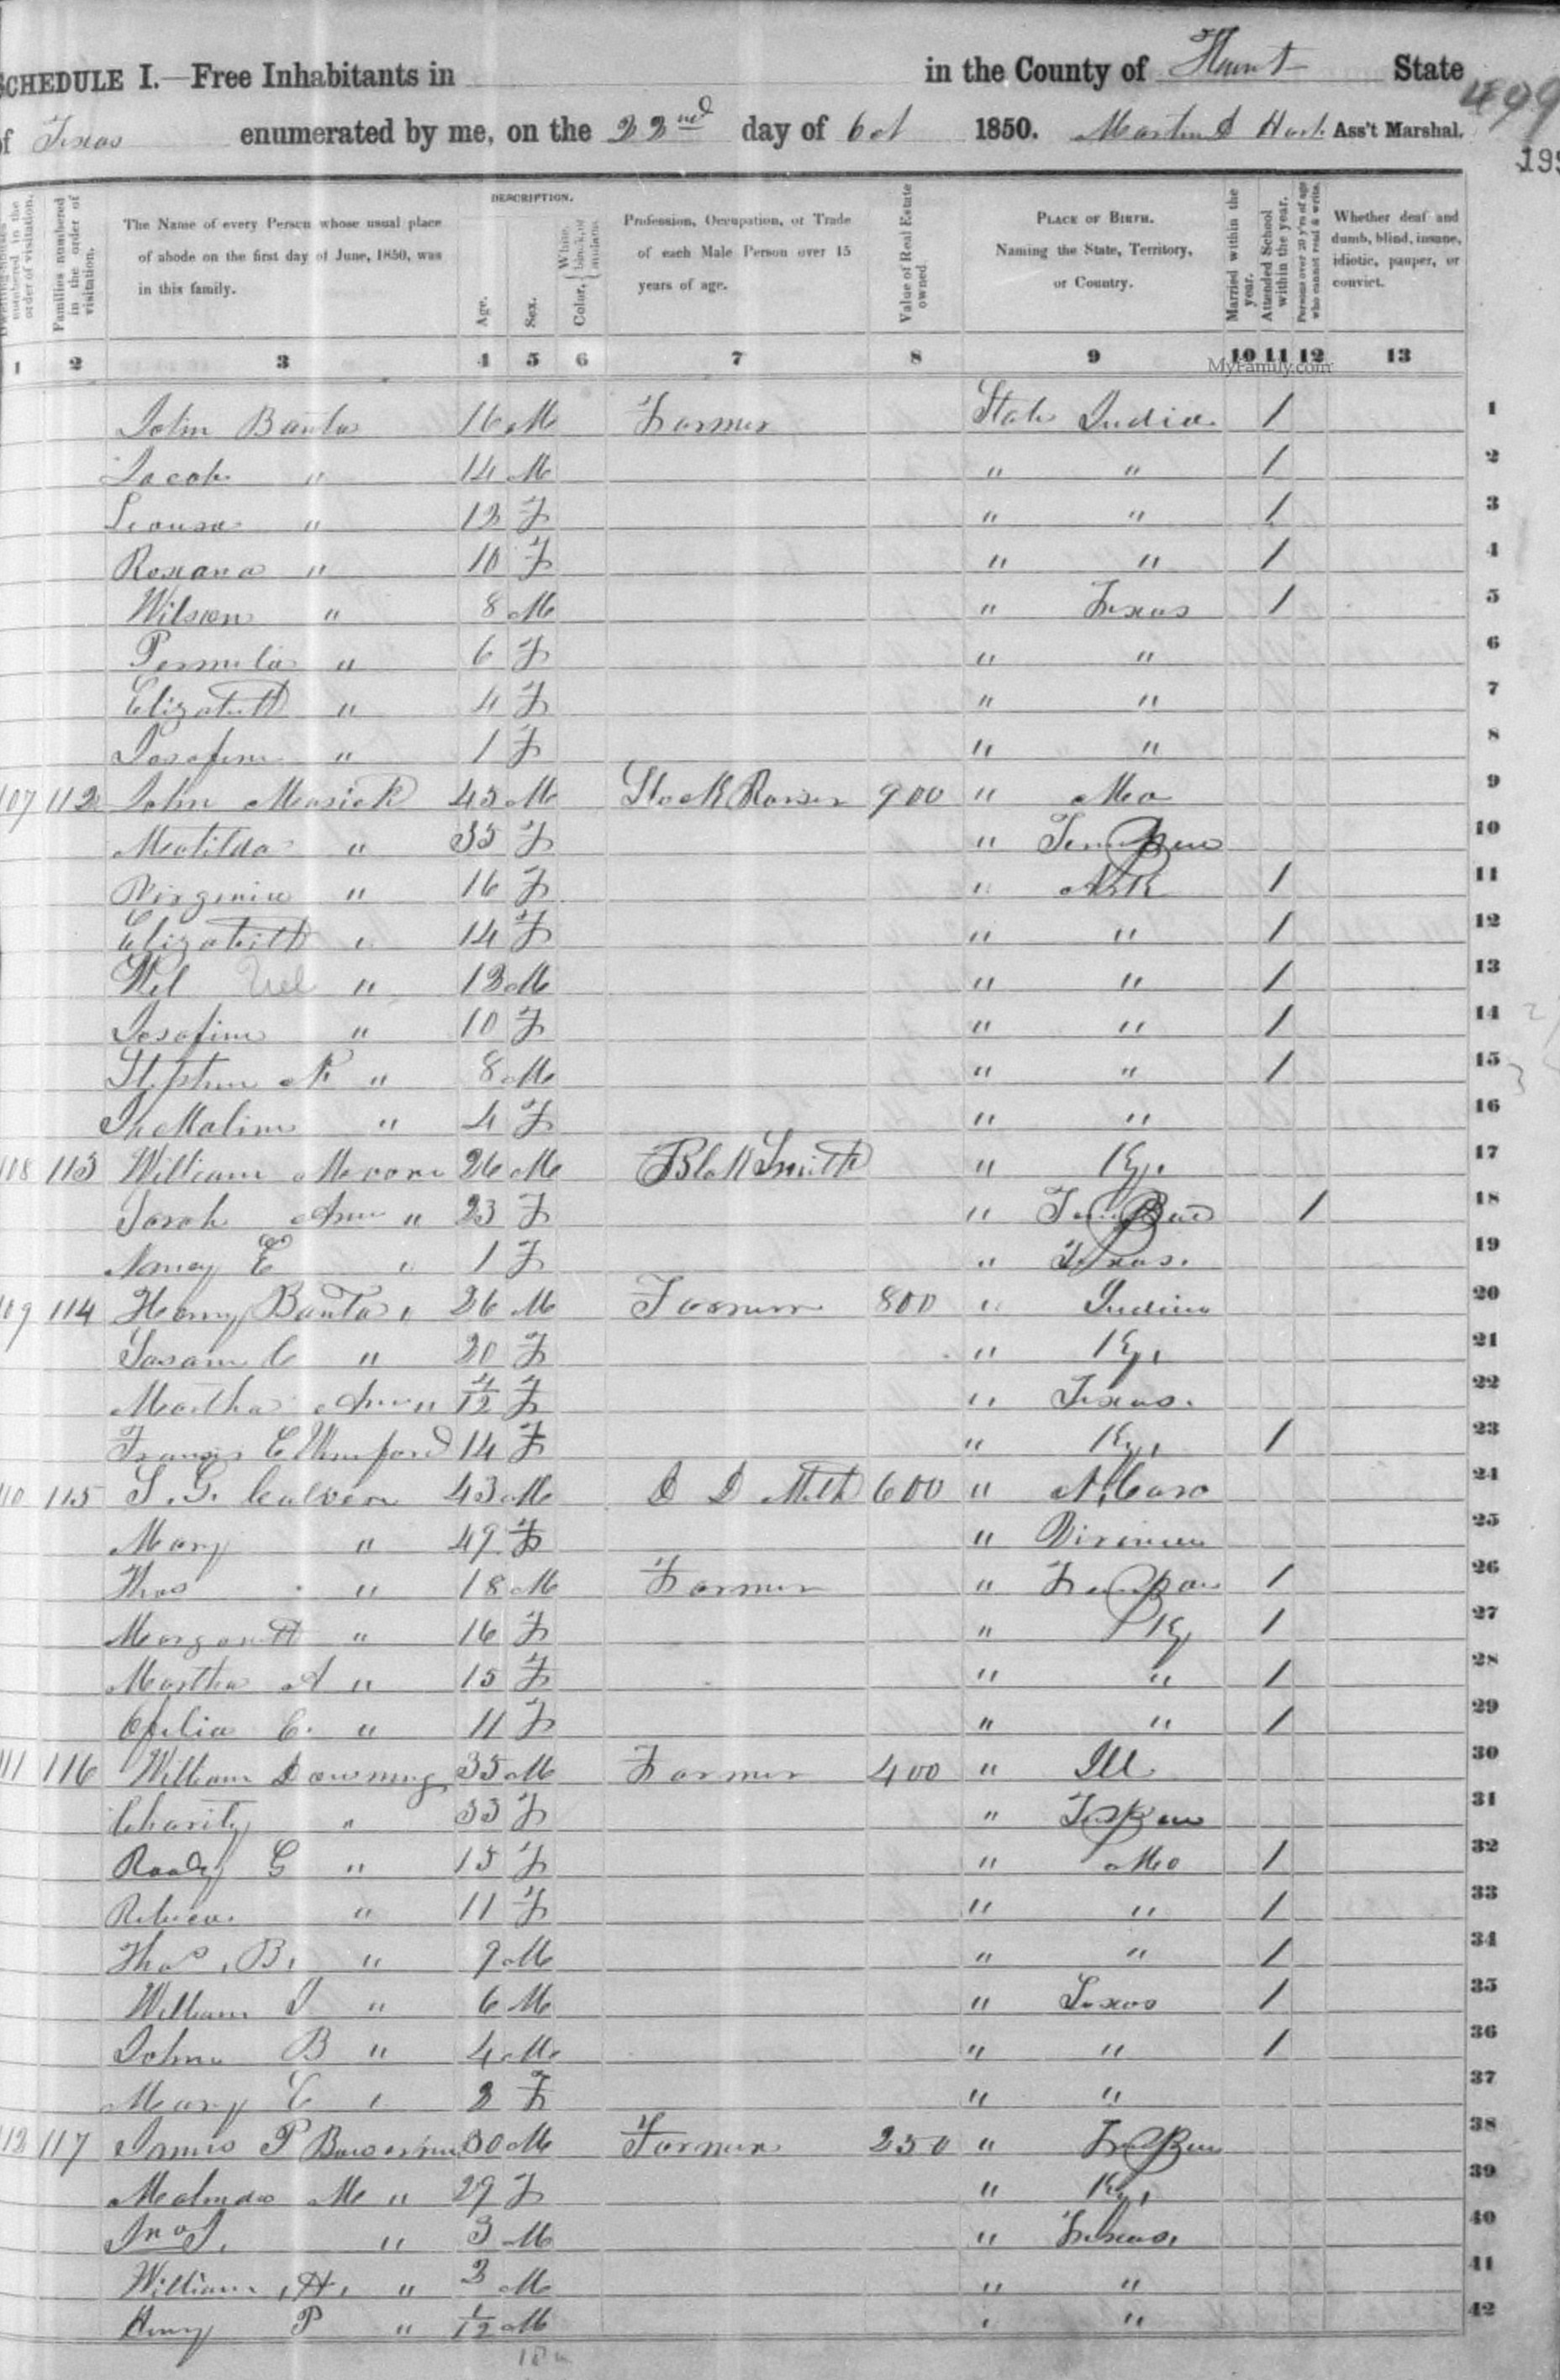 SCHEDULE I.—Free Inhabitants in in the County of Hunt State
of Texas enumerated by me, on the 22nd day of Oct 1850. Martin D Hart Ass't Marshal.
499
195
numbered in the order of visitation.
Families numbered in the order of visitation.
The Name of every Person whose usual place of abode on the first day of June, 1850, was in this family.
DESCRIPTION.
Age.
Sex.
Color, { White, black, or mulatto.
Profession, Occupation, or Trade of each Male Person over 15 years of age.
Value of Real Estate owned.
PLACE OF BIRTH. Naming the State, Territory, or Country.
Married within the year.
Attended School within the year.
Persons over 20 y'rs of age who cannot read & write.
Whether deaf and dumb, blind, insane, idiotic, pauper, or convict.
1 2 3 4 5 6 7 8 9 10 11 12 13
MyFamily.com
John Banta 16 M Farmer State India. 1 1
Jacob " 14 M " " 1 2
" 12 F " " 1 3
Roxana " 10 F " " 1 4
Wilson " 8 M " Texas 1 5
Permelia " 6 F " " 6
Elizabeth " 4 F " " 7
Josafine " 1 F " " 8
107 112 John Masick 45 M Stock Raiser 900 " Mo 9
Matilda " 35 F " 10
Virginia " 16 F " Ark 1 11
Elizabeth " 14 F " " 1 12
" 12 M " " 1 13
Josafine " 10 F " " 1 14
Stephen " 8 M " " 1 15
" 4 F " " 16
108 113 William Moore 26 M Blak Smith " Ky. 17
Sarah Ann " 23 F " 1 18
Nancy E " 1 F " Texas. 19
109 114 Henry Banta 26 M Farmer 800 " Indiana 20
Susan C " 20 F " Ky. 21
Martha Ann " 4/12 F " Texas. 22
Francis E 14 F " Ky. 1 23
110 115 S. G. 43 M D D Meth 600 " N. Caro 24
Mary " 49 F " 25
Thos " 18 M Farmer " 1 26
Margarett " 16 F " Ky 1 27
Martha A " 15 F " " 1 28
Ofelia C. " 11 F " " 1 29
111 116 William Downing 35 M Farmer 400 " Ill 30
Charity " 33 F " 31
G " 15 F " Mo 1 32
Rebeca. " 11 F " " 1 33
Thos. B. " 9 M " " 1 34
William J " 6 M " Texas 1 35
John B " 4 M " " 1 36
Mary C " 2 F " " 37
112 117 James P 30 M Farmer 250 " 38
M " 29 F " Ky. 39
Jno J. " 3 M " Texas. 40
William, H, " 2 M " " 41
Henry P " 1/12 M " " 42